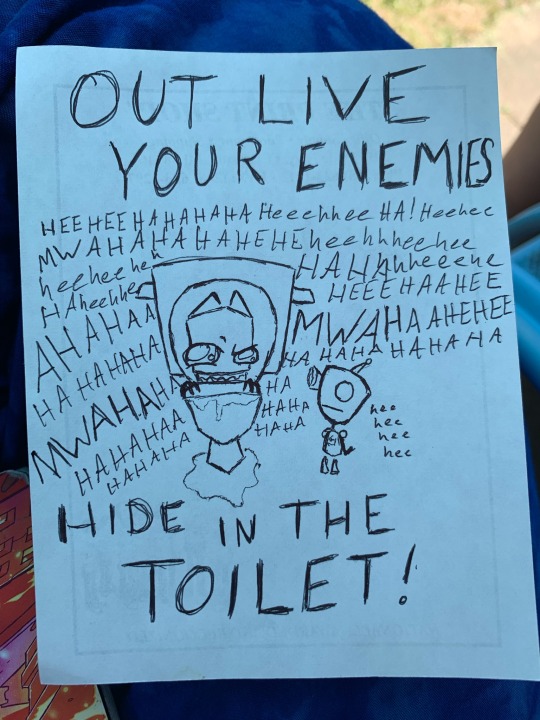 OUT LIVE
YOUR ENEMIES
HEEHEEHAHAHAHA Heeehhee HA! Heehee
MWAHAHAHAHEHEheehhheehee
heehee heh HAHAhheeene
HAheehhe HEEEHAAHEE
AHAHAA MWAHAAHEHEE
HAHAHAHA HA HAHA HAHAHA
MWAHAHA HA
HAHAHAA HAHA
HAHAHA HAHA
hee
hee
hee
hee
HIDE IN THE
TOILET!